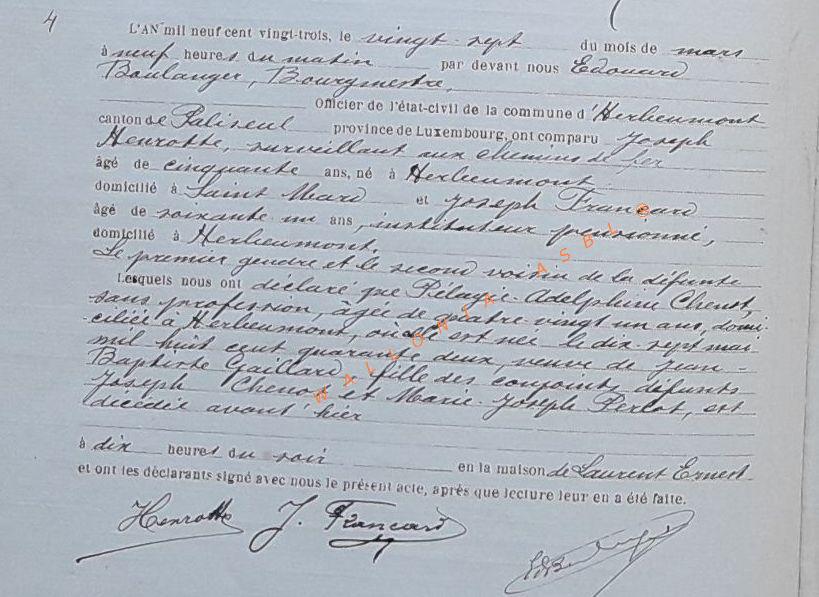 4
L'AN mil neuf cent vingt-trois, le vingt-sept du mois de mars
à neuf heures du matin par devant nous Edouard
Boulanger, Bourgmestre,
Officier de l'état-civil de la commune d'Herbeumont
canton de Paliseul province de Luxembourg, ont comparu Joseph
Henrotte, surveillant aux chemins de fer
âgé de cinquante ans, né à Herbeumont
domicilié à Saint Mard et Joseph Francard
âgé de soixante un ans, instituteur pensionné,
domicilié à Herbeumont.
Le premier gendre et le second voisin de la défunte
Lesquels nous ont déclaré que Pélagie-Adelphine Chenot,
sans profession, âgée de quatre vingt un ans, domi-
ciliée à Herbeumont, où elle est née le dix-sept mai
mil huit cent quarante deux, veuve de Jean-
Baptiste Gaillard, fille des conjoints défunts
Joseph Chenot et Marie-Joseph Perlot, est
décédée avant hier
à dix heures du soir en la maison de Laurent Ernest
et ont les déclarants signé avec nous le présent acte, après que lecture leur en a été faite.
Henrotte J. Francard
WALLONIA ASBL